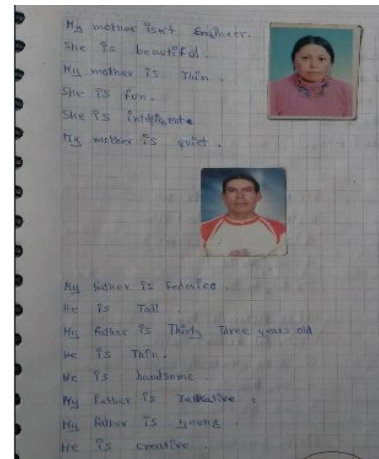 My mother isn't Engineer.
She is beautiful.
My mother is Thin.
She is fun.
She is
My mother is quiet.
My father is Federico
He is Tall.
My father is Thirty Three years old.
He is Thin.
He is handsome
My Father is Talkative.
My Father is young.
He is creative.